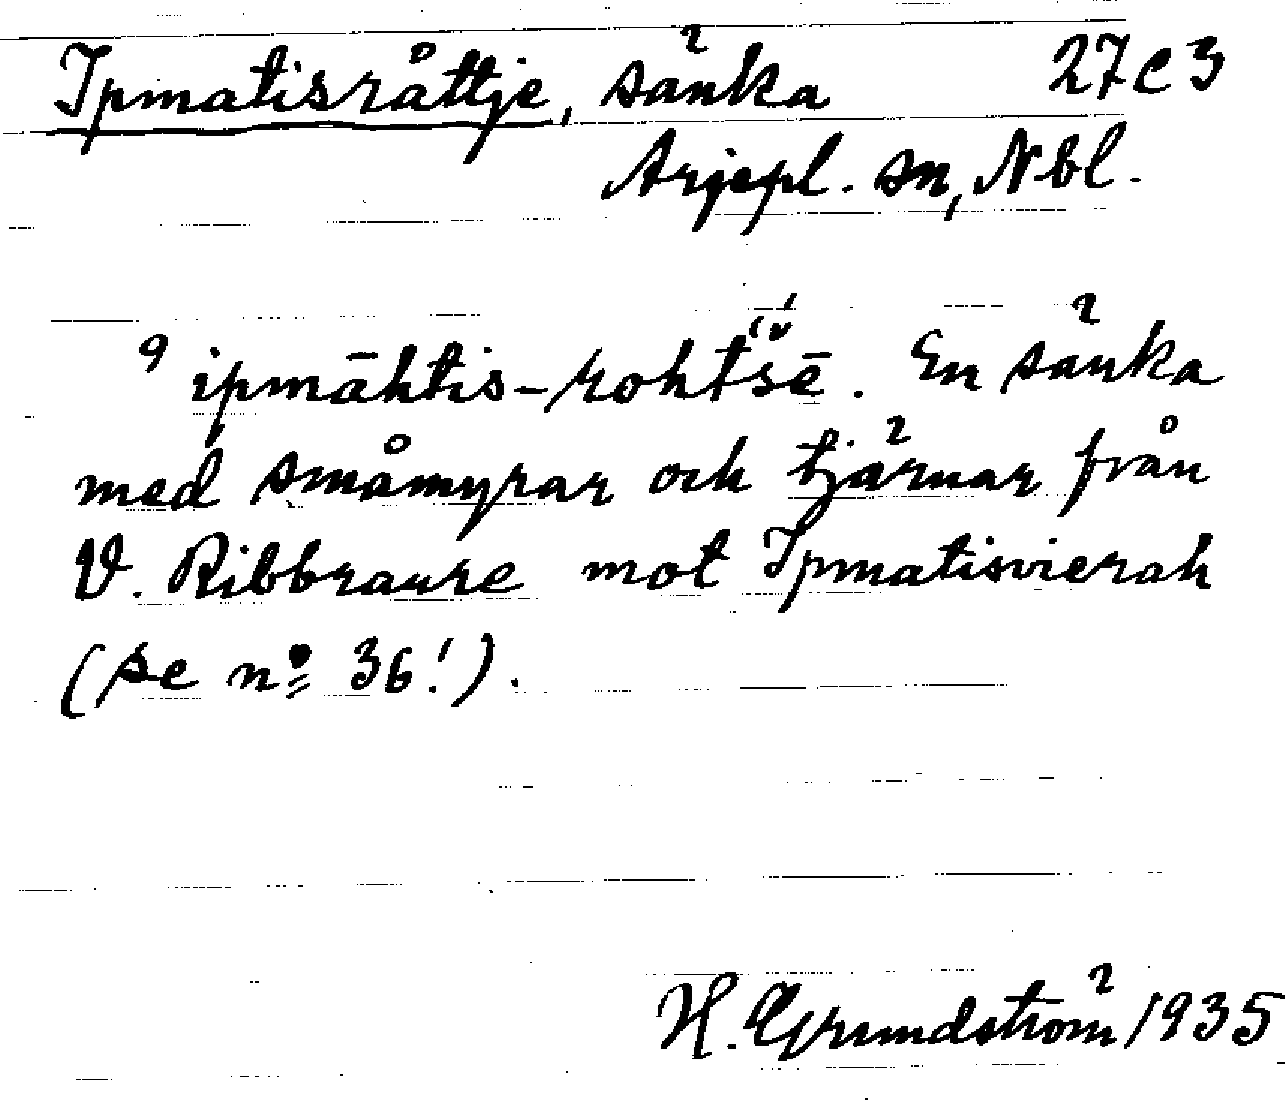 Ipmatisråttje, sänka 27 C 3
Arjepl. sn, Nbl.
9 ipmāhtis-rohtšē. En sänka
med småmyrar och tjärnar från
V. Ribbraure mot Ipmatisvierah
(se nº 36!).
H. Grundström 1935